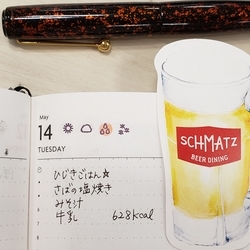 May
14
TUESDAY
ひじきごはん☆
さばの塩焼き
みそ汁
牛乳 628kcal
SCHMATZ
BEER DINING